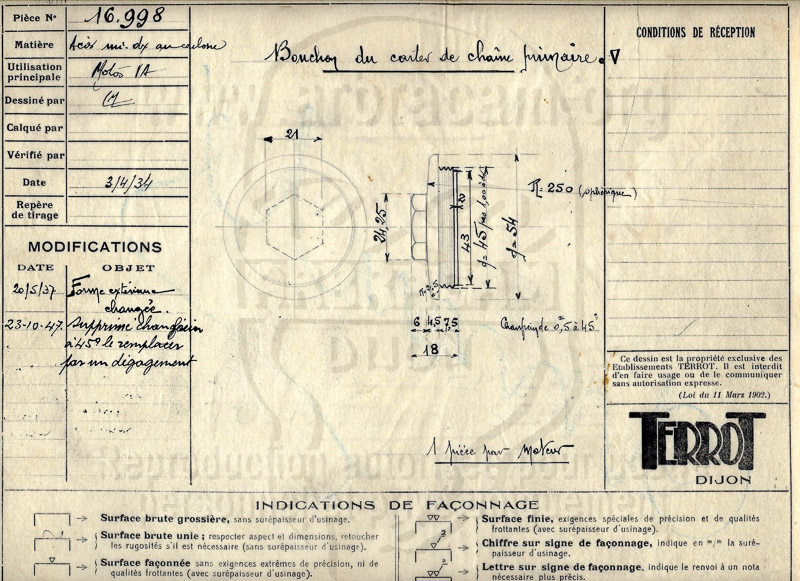 Pièce N° 16.998
Matière Acier mi. dx au carbone
Utilisation principale Motos IA
Dessiné par
Calqué par
Vérifié par
Date 3/4/34
Repère de tirage
MODIFICATIONS
DATE OBJET
20/5/37 Forme extérieure
changée.
23-10-47. Supprimé chanfrein
à 45° le remplacer
par un dégagement
Bouchon du carter de chaîne primaire.
21
24,25
R=250 (sphérique)
20
43
d=45 pas 1,00
d=54
6 4,5 7,5
18
Chanfrein de 0,5 à 45°
1 pièce par Moteur
CONDITIONS DE RÉCEPTION
Ce dessin est la propriété exclusive des
Etablissements TERROT. Il est interdit
d'en faire usage ou de le communiquer
sans autorisation expresse.
(Loi du 11 Mars 1902.)
TERROT
DIJON
INDICATIONS DE FAÇONNAGE
Surface brute grossière, sans surépaisseur d'usinage.
Surface brute unie ; respecter aspect et dimensions, retoucher
les rugosités s'il est nécessaire (sans surépaisseur d'usinage).
Surface façonnée sans exigences extrêmes de précision, ni de
qualités frottantes (avec surépaisseur d'usinage).
Surface finie, exigences spéciales de précision et de qualités
frottantes (avec surépaisseur d'usinage).
Chiffre sur signe de façonnage, indique en m/m la suré-
paisseur d'usinage.
Lettre sur signe de façonnage, indique le renvoi à un nota
nécessaire plus précis.